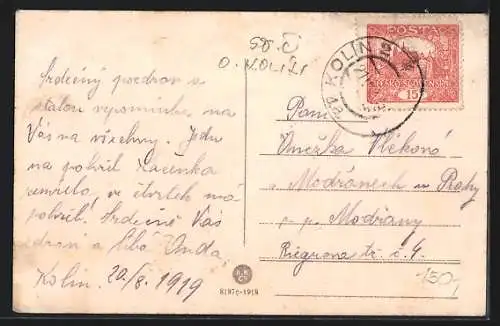 Srdečný pozdrav s
stalou vzpomínkou, na
Vás na všechny. Jedu
na pohřeb Kacenka
zemřela, ve čtvrtek má
pohřeb. Srdečně Vás
zdraví a líbá Anda.
Kolín. 20/8. 1919
O. KOLÍN
KOLÍN
POŠTA
ČESKO-SLOVENSKÁ
15
Paní
Anežka Vlčková
v Modřanech u Prahy
p. p. Modřany
Riegrova tř. č. 9.
150,
8197c-1918